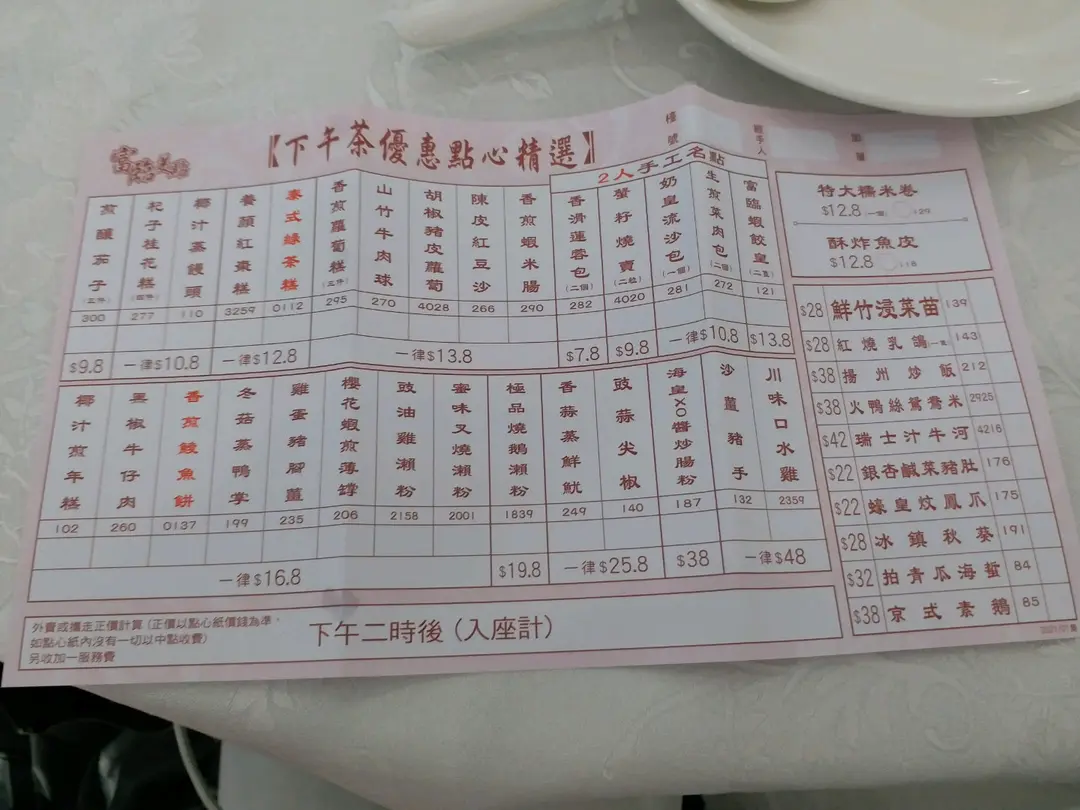 富臨美點
【下午茶優惠點心精選】
檯號
經手人
加單
煎釀茄子(三件) 300
杞子桂花糕(四件) 277
椰汁蒸饅頭 110
養顏紅棗糕 3259
泰式綠茶糕 0112
香煎蘿蔔糕(三件) 295
山竹牛肉球 270
胡椒豬皮蘿蔔 4028
陳皮紅豆沙 266
香煎蝦米腸 290
$9.8
一律$10.8
一律$12.8
一律$13.8
2人手工名點
香滑蓮蓉包(二個) 282
蟹籽燒賣(二粒) 4020
奶皇流沙包(一個) 281
生煎菜肉包(二個) 272
富臨蝦餃皇(二隻) 121
$7.8
$9.8
一律$10.8
$13.8
椰汁煎年糕 102
黑椒牛仔肉 260
香煎鯪魚餅 0137
冬菇蒸鴨掌 199
雞蛋豬腳薑 235
櫻花蝦煎薄罉 206
豉油雞瀨粉 2158
蜜味叉燒瀨粉 2001
極品燒鵝瀨粉 1839
香蒜蒸鮮魷 249
豉蒜尖椒 140
海皇XO醬炒腸粉 187
沙薑豬手 132
川味口水雞 2359
一律$16.8
$19.8
一律$25.8
$38
一律$48
特大糯米卷
$12.8 129
酥炸魚皮
$12.8 118
$28 鮮竹浸菜苗 139
$28 紅燒乳鴿(一隻) 143
$38 揚州炒飯 212
$38 火鴨絲鴛鴦米 2925
$42 瑞士汁牛河 4216
$22 銀杏鹹菜豬肚 176
$22 蠔皇炆鳳爪 175
$28 冰鎮秋葵 191
$32 拍青瓜海蜇 84
$38 京式素鵝 85
外賣或攜走正價計算(正價以點心紙價錢為準,
如點心紙內沒有一切以中點收費)
另收加一服務費
下午二時後(入座計)